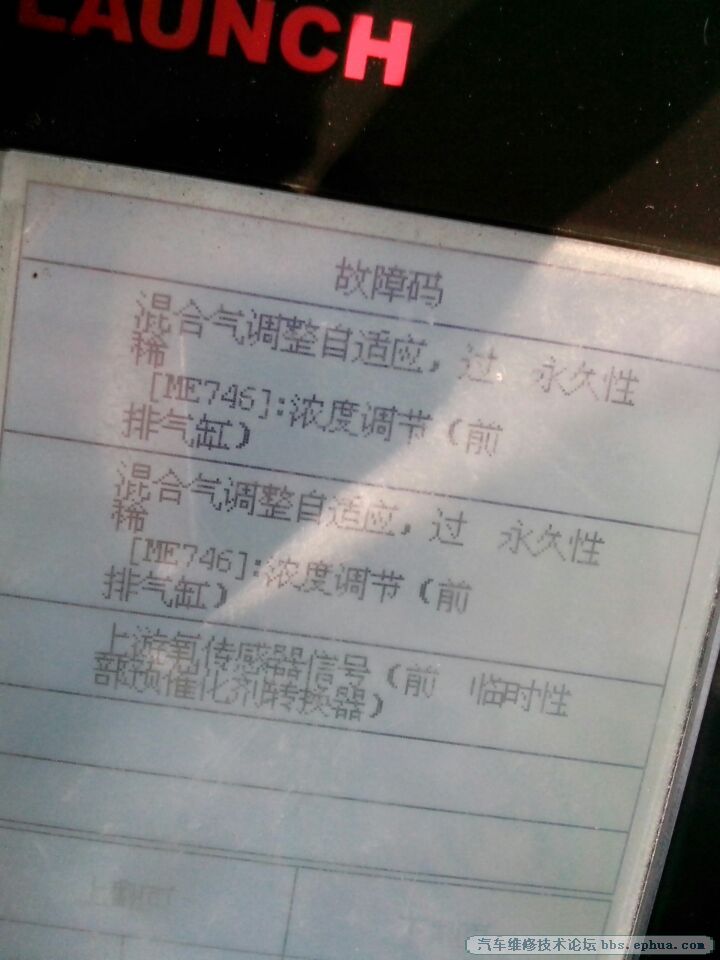 LAUNCH
故障码
混合气调整自适应，过 永久性
稀
[ME746]:浓度调节（前
排气缸）
混合气调整自适应，过 永久性
稀
[ME746]:浓度调节（前
排气缸）
上游氧传感器信号（前 临时性
部预催化剂转换器）
汽车维修技术论坛 bbs.ephua.com